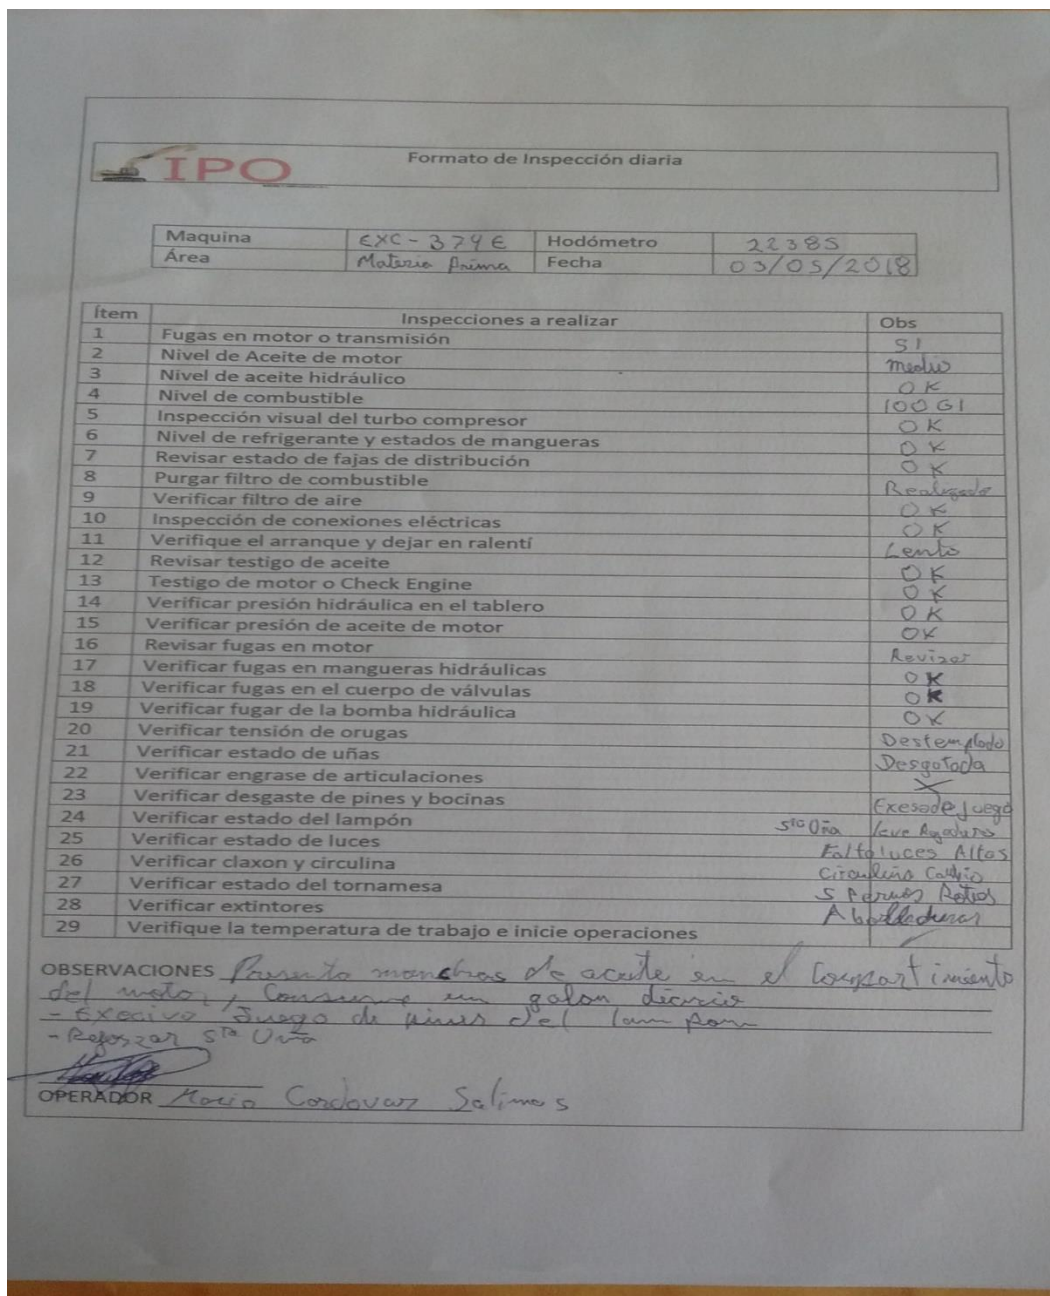 IPO
Formato de Inspección diaria
Maquina EXC-374E Hodómetro 22385
Área Materia Prima Fecha 03/05/2018
Ítem Inspecciones a realizar Obs
1 Fugas en motor o transmisión SI
2 Nivel de Aceite de motor medio
3 Nivel de aceite hidráulico OK
4 Nivel de combustible 100 Gl
5 Inspección visual del turbo compresor OK
6 Nivel de refrigerante y estados de mangueras OK
7 Revisar estado de fajas de distribución OK
8 Purgar filtro de combustible Realizado
9 Verificar filtro de aire OK
10 Inspección de conexiones eléctricas OK
11 Verifique el arranque y dejar en ralentí Lento
12 Revisar testigo de aceite OK
13 Testigo de motor o Check Engine OK
14 Verificar presión hidráulica en el tablero OK
15 Verificar presión de aceite de motor OK
16 Revisar fugas en motor Revizar
17 Verificar fugas en mangueras hidráulicas OK
18 Verificar fugas en el cuerpo de válvulas OK
19 Verificar fugar de la bomba hidráulica OK
20 Verificar tensión de orugas Destemplado
21 Verificar estado de uñas Desgotada
22 Verificar engrase de articulaciones X
23 Verificar desgaste de pines y bocinas Exeso de juego
24 Verificar estado del lampón 5ta Uña leve
25 Verificar estado de luces Falta luces Altas
26 Verificar claxon y circulina Circulina
27 Verificar estado del tornamesa 5 Pernos Rotos
28 Verificar extintores Abolladuras
29 Verifique la temperatura de trabajo e inicie operaciones
OBSERVACIONES Presenta manchas de aceite en el Compartimiento
del motor, Consume un galon diario
- Execivo Juego de pines del lampon
- Reforzar 5ta Uña
OPERADOR Mario Cordovar Salinas